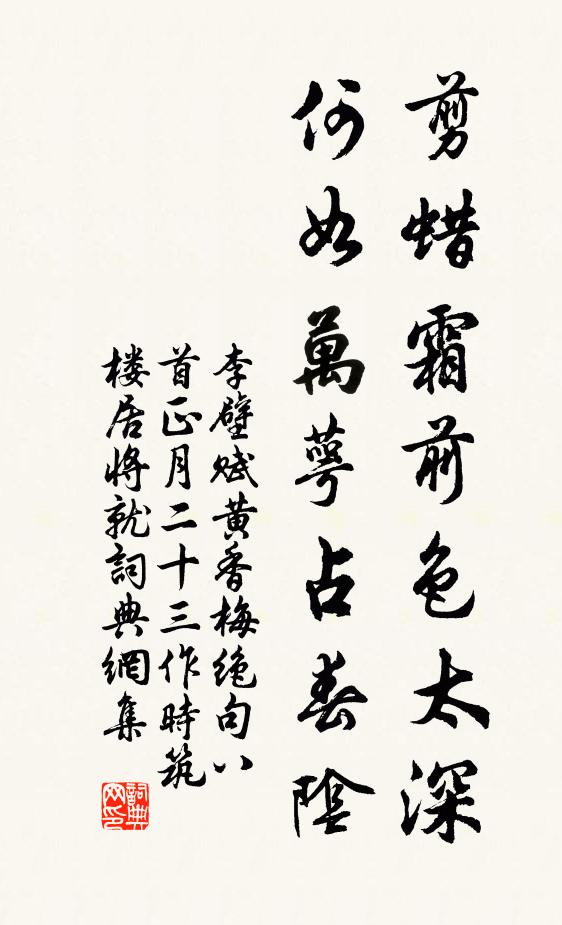 剪蜡霜前色太深
何如萬萼占春陰
李壁赋黄香梅绝句八
首正月二十三作時筑
楼居將就詞典網集
詞典网印